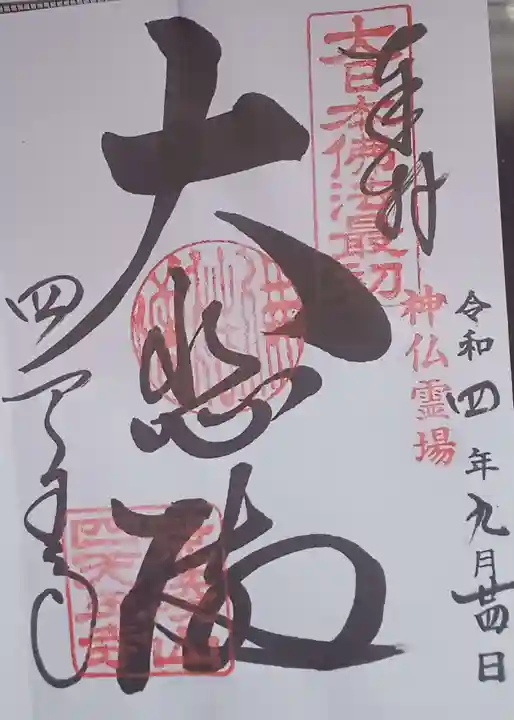 奉拝
大日本佛法最初
神仏霊場
令和四年九月廿四日
大悲殿
四天王寺
四天王寺